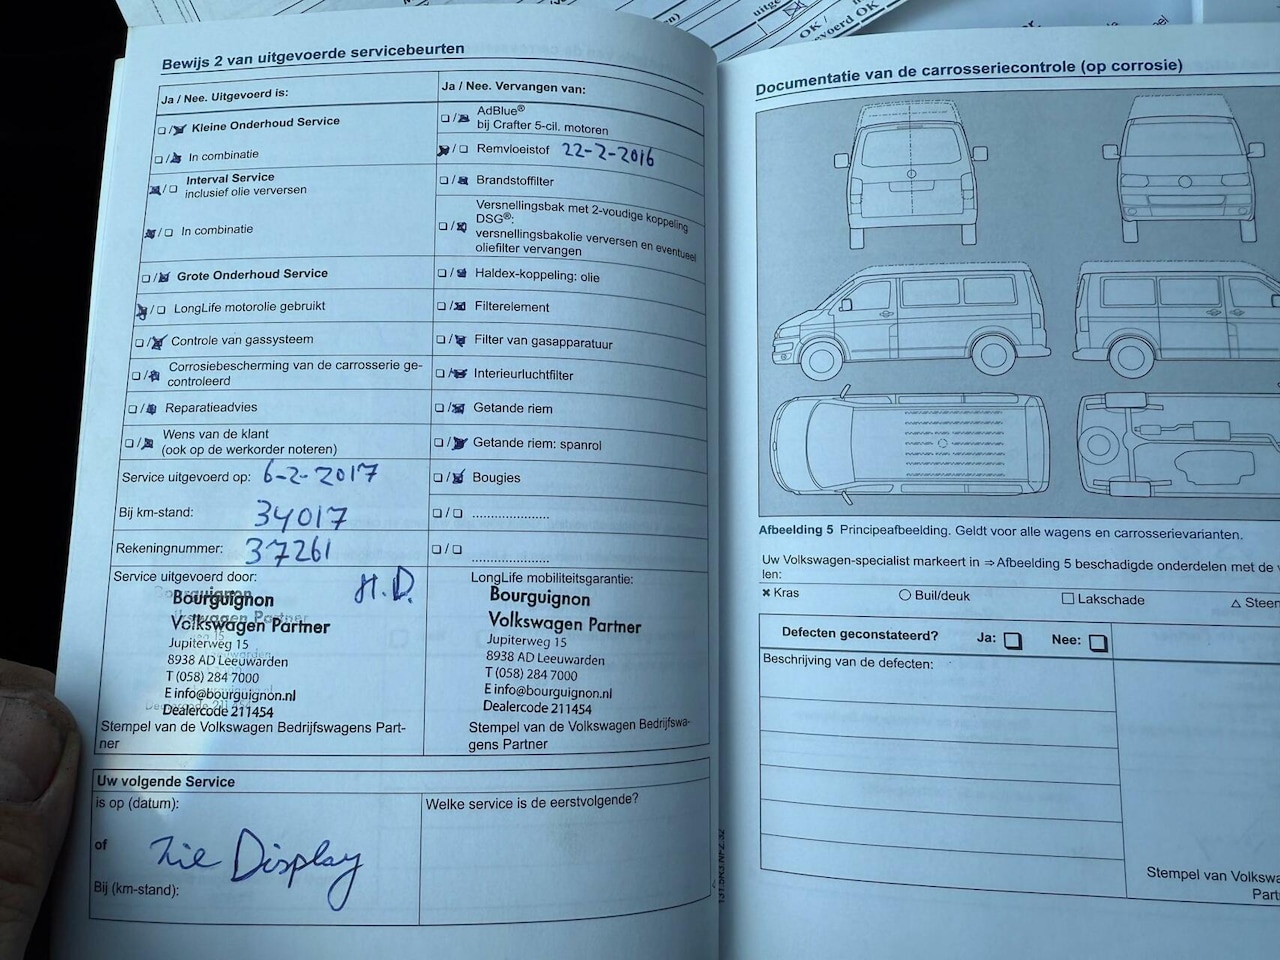 uitge
OK /
Bewijs 2 van uitgevoerde servicebeurten
Ja / Nee. Uitgevoerd is:
Ja / Nee. Vervangen van:
☐/☒ Kleine Onderhoud Service
☐/☒ AdBlue®
bij Crafter 5-cil. motoren
☐/☒ In combinatie
☒/☐ Remvloeistof 22-2-2016
☒/☐ Interval Service
inclusief olie verversen
☐/☒ Brandstoffilter
☒/☐ In combinatie
☐/☒ Versnellingsbak met 2-voudige koppeling
DSG®:
versnellingsbakolie verversen en eventueel
oliefilter vervangen
☐/☒ Grote Onderhoud Service
☐/☒ Haldex-koppeling: olie
☒/☐ LongLife motorolie gebruikt
☐/☒ Filterelement
☐/☒ Controle van gassysteem
☐/☒ Filter van gasapparatuur
☐/☒ Corrosiebescherming van de carrosserie ge-
controleerd
☐/☒ Interieurluchtfilter
☐/☒ Reparatieadvies
☐/☒ Getande riem
☐/☒ Wens van de klant
(ook op de werkorder noteren)
☐/☒ Getande riem: spanrol
Service uitgevoerd op: 6-2-2017
☐/☒ Bougies
Bij km-stand: 34017
☐/☐ .....................
Rekeningnummer: 37261
☐/☐ .....................
Service uitgevoerd door: H.D.
Bourguignon
Volkswagen Partner
Jupiterweg 15
8938 AD Leeuwarden
T (058) 284 7000
E info@bourguignon.nl
Dealercode 211454
Stempel van de Volkswagen Bedrijfswagens Part-
ner
LongLife mobiliteitsgarantie:
Bourguignon
Volkswagen Partner
Jupiterweg 15
8938 AD Leeuwarden
T (058) 284 7000
E info@bourguignon.nl
Dealercode 211454
Stempel van de Volkswagen Bedrijfswa-
gens Partner
Uw volgende Service
is op (datum):
Welke service is de eerstvolgende?
of
zie Display
Bij (km-stand):
Documentatie van de carrosseriecontrole (op corrosie)
Afbeelding 5 Principeafbeelding. Geldt voor alle wagens en carrosserievarianten.
Uw Volkswagen-specialist markeert in ⇒ Afbeelding 5 beschadigde onderdelen met de
len:
✖ Kras ○ Buil/deuk □ Lakschade △ Steen
Defecten geconstateerd? Ja: ☐ Nee: ☐
Beschrijving van de defecten:
Stempel van Volkswa
Part